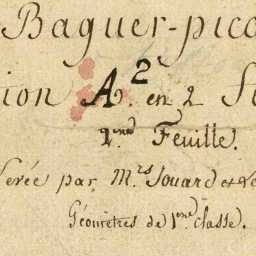 Baguer-pico
ion A². en 2
2.nd Feuille.
par M.rs Jouard et
Géomètres de 1.ère classe.